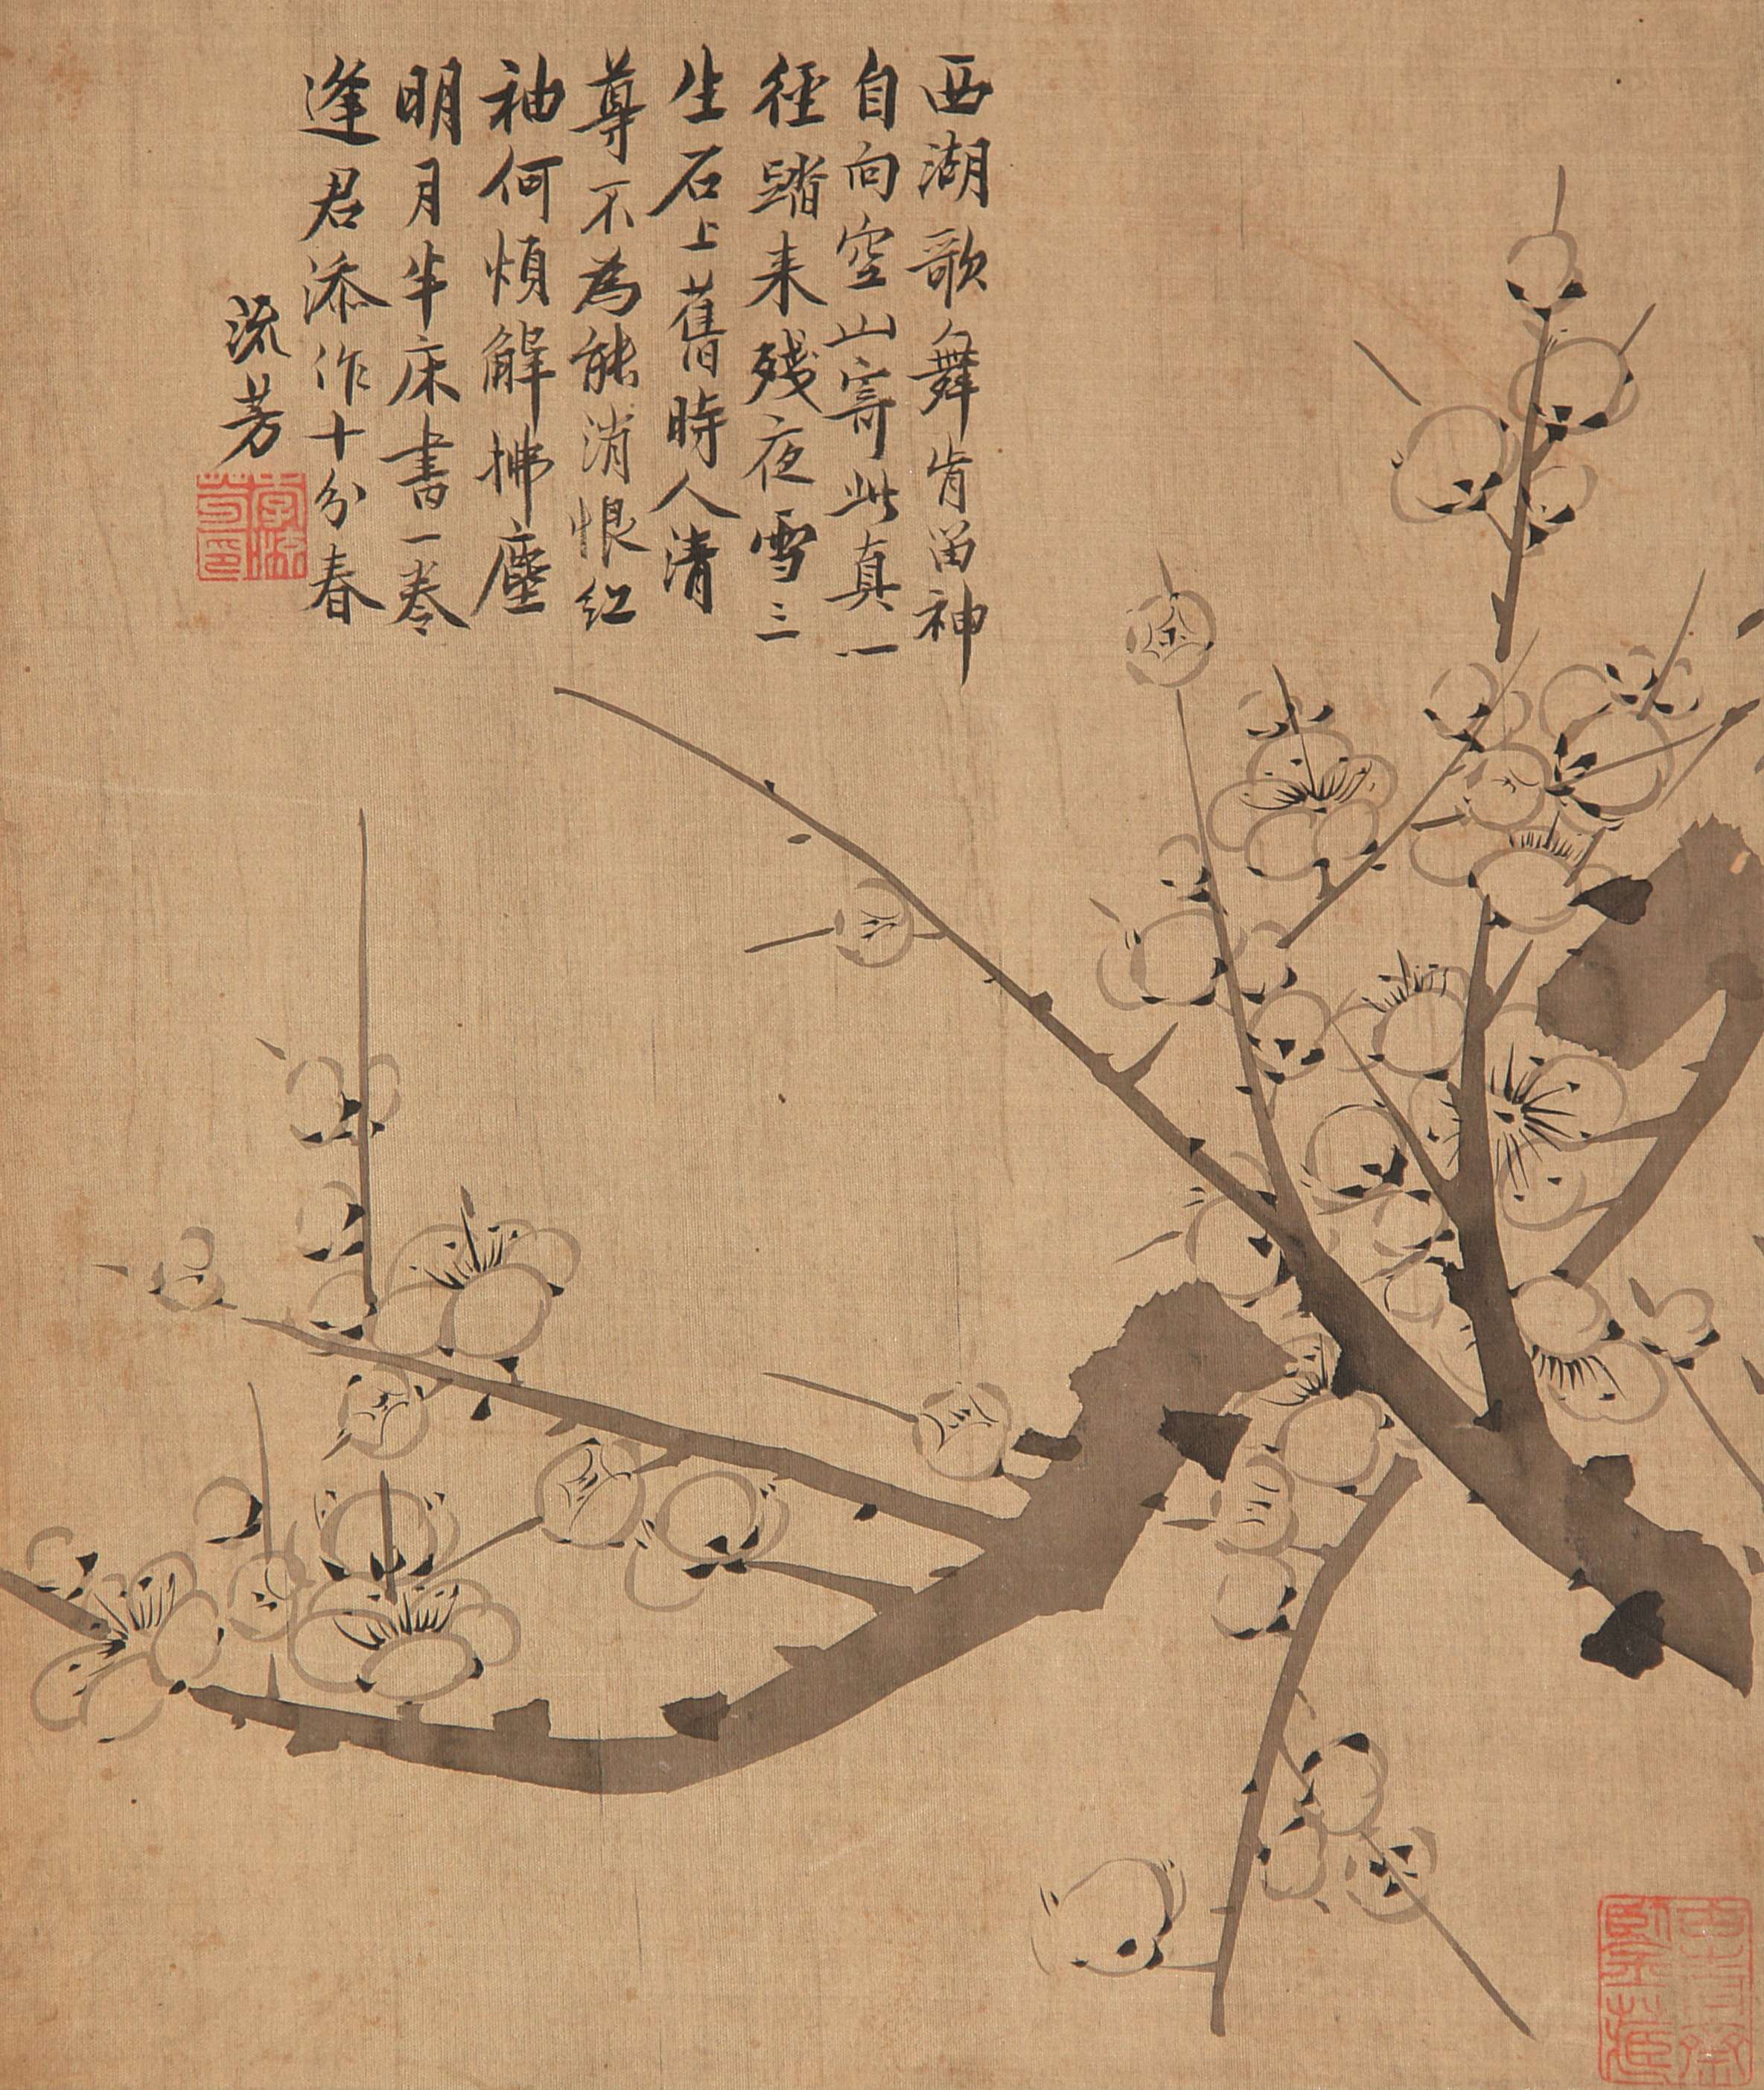 西湖歌舞肯留神
自向空山寄此真一
徑踏来殘夜雪三
生石上舊時人清
尊不為能消恨紅
袖何煩解拂塵
明月半床書一卷
逢君添作十分春
流芳
李流芳印